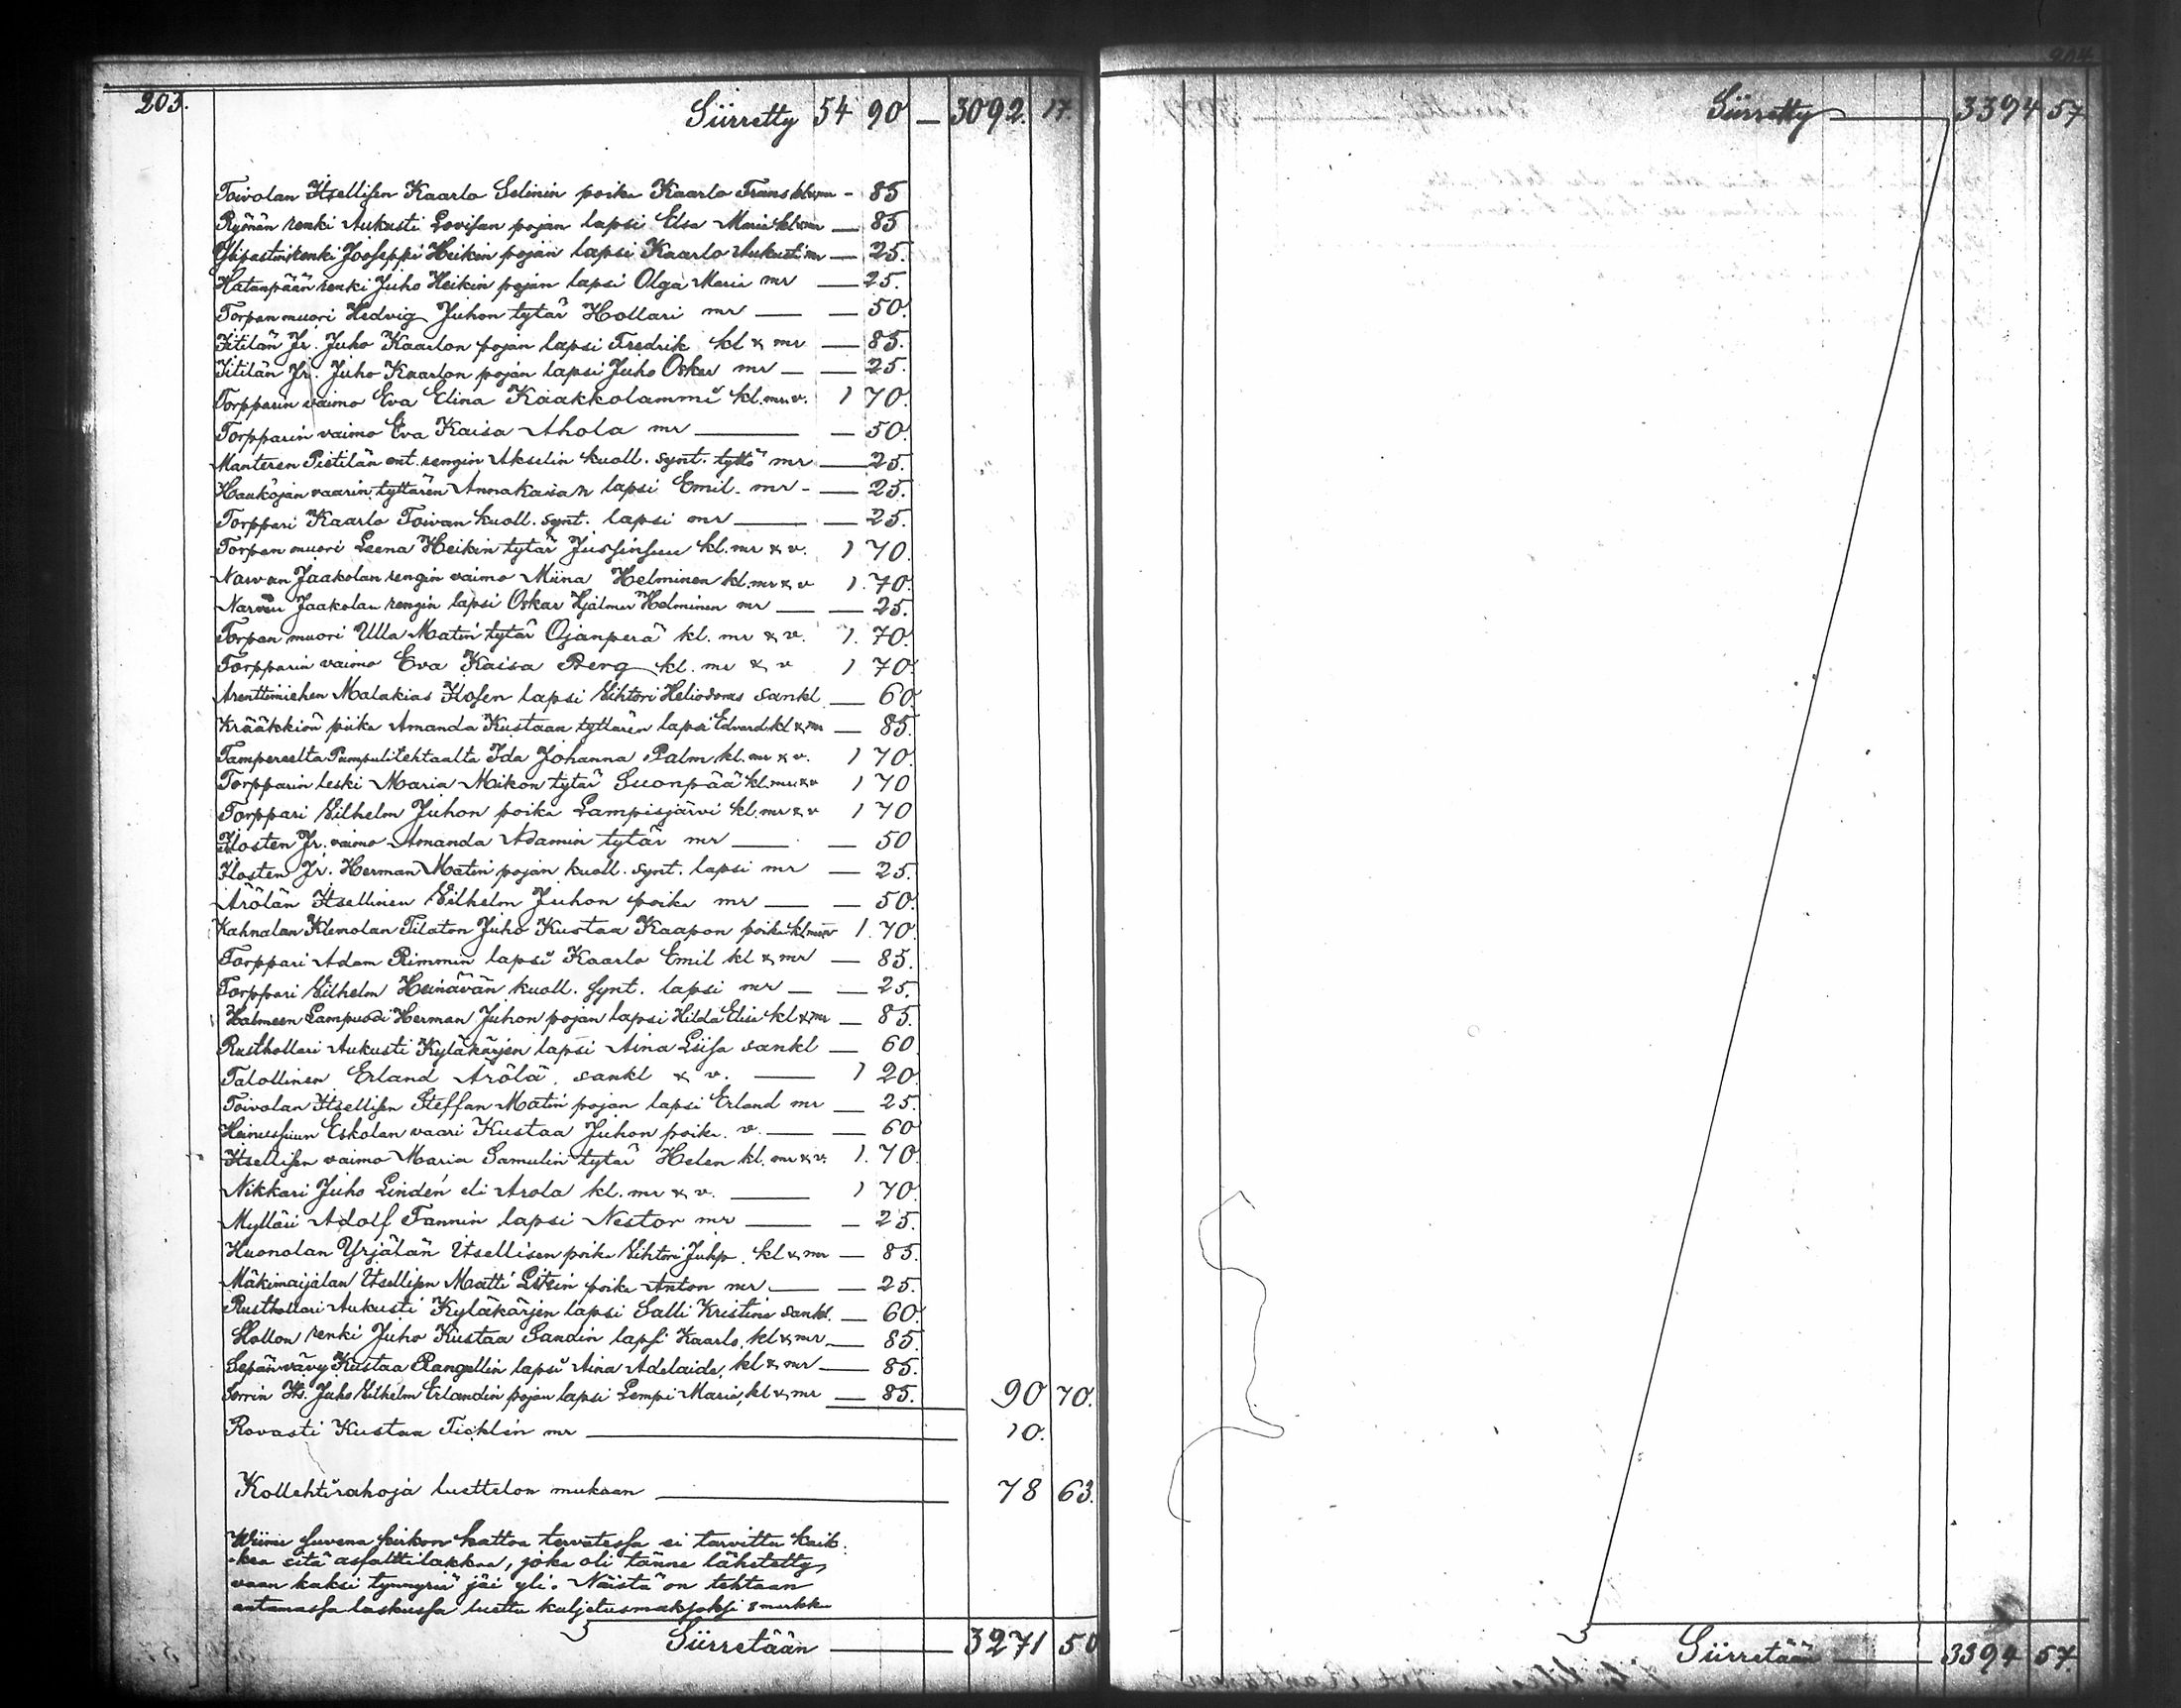 203.
Siirretty 54 90 — 3092. 17.
Toivolan Itsellisen Kaarlo Selinin poika Kaarlo Frans kl & mr - 85
Ryönän renki Aukusti Lovisan pojan lapsi Elsa Maria kl & mr — 85
Ylipastin renki Jooseppi Heikin pojan lapsi Kaarlo Aukusti mr — 25.
Hatanpään renki Juho Heikin pojan lapsi Olga Maria mr — 25.
Torpan muori Hedvig Juhon tytär Hollari mr — — 50.
Iitilän Jr. Juho Kaarlon pojan lapsi Fredrik kl & mr — 85.
Iitilän Jr. Juho Kaarlon pojan lapsi Juho Oskar mr — — 25.
Torpparin vaimo Eva Elina Kaakkolammi kl. mr. v. 1 70.
Torpparin vaimo Eva Kaisa Ahola mr — — 50.
Manteren Pietilän ent. rengin Akselin kuoll. synt. tyttö mr — 25.
Haukojan vaarin tyttären Annakaisan lapsi Emil. mr - — 25.
Torppari Kaarlo Toivan kuoll. synt. lapsi mr — — 25.
Torpan muori Leena Heikin tytär Jussinsuu kl. mr & v. 1 70.
Narvan Jaakolan rengin vaimo Miina Helminen kl. mr & v 1. 70.
Narvan Jaakolan rengin lapsi Oskar Hjalmar Helminen mr — — 25.
Torpan muori Ulla Matin tytär Ojanperä kl. mr & v. 1. 70.
Torpparin vaimo Eva Kaisa Berg kl. mr & v 1 70.
Arenttimiehen Malakias Ilosen lapsi Vihtori Heliodorus sankl — 60.
Krääkkiön piika Amanda Kustaan tyttären lapsi Edvard kl & mr — 85.
Tampereelta Pumpulitehtaalta Ida Johanna Palm kl. mr & v. 1 70.
Torpparin leski Maria Mikon tytär Suonpää kl. mr & v 1 70
Torppari Vilhelm Juhon poika Lampisjärvi kl. mr & v 1 70
Ilosten Jr. vaimo Amanda Adamin tytär mr — — 50
Ilosten Jr. Herman Matin pojan kuoll. synt. lapsi mr — 25.
Arölän Itsellinen Vilhelm Juhon poika mr — — 50.
Kahnalan Klemolan Tilaton Juho Kustaa Kaapon poika kl mr & v 1. 70.
Torppari Adam Rimmin lapsi Kaarlo Emil kl & mr — 85.
Torppari Vilhelm Heinävän kuoll. synt. lapsi mr — — 25.
Halmeen Lampuodi Herman Juhon pojan lapsi Hilda Elisa kl & mr — 85.
Rusthollari Aukusti Kyläkärjen lapsi Aina Liisa sankl — 60.
Talollinen Erland Arölä. sankl & v. — 1 20.
Toivolan Itsellisen Steffan Matin pojan lapsi Erland mr — 25.
Heinussuun Eskolan vaari Kustaa Juhon poika. v. — — 60
Itsellisen vaimo Maria Samulin tytär Helen kl. mr & v. 1. 70.
Nikkari Juho Lindén eli Arola kl. mr & v. — 1 70.
Mylläri Adolf Tannin lapsi Nestor mr — — 25.
Huonolan Yrjälän Itsellisen poika Vihtori Juho. kl & mr — 85.
Mäkimaijalan Itsellisen Matti Liisin poika Anton mr. — — 25.
Rusthollari Aukusti Kyläkärjen lapsi Salli Kristina sankl. — 60.
Hollon renki Juho Kustaa Sandin lapsi Kaarlo, kl & mr — 85.
Sepän vävy Kustaa Rangellin lapsi Aina Adelaide, kl & mr — 85.
Sorrin Its. Juho Vilhelm Erlandin pojan lapsi Lempi Maria, kl & mr — 85. 90 70.
Rovasti Kustaa Ticklén mr — 10.
Kollehtirahoja luettelon mukaan — 78 63.
Wiime suvena kirkon kattoa tervatessa ei tarvittu kaik-
kea sitä asfalttilakkaa, joka oli tänne lähetetty,
vaan kaksi tynnyriä jäi yli. Näistä on tehtaan
antamassa laskussa luettu kuljetusmaksoksi 8 markka
Siirretään — 3271 50
204
Siirretty — 3394 57
Siirretään — 3394 57.